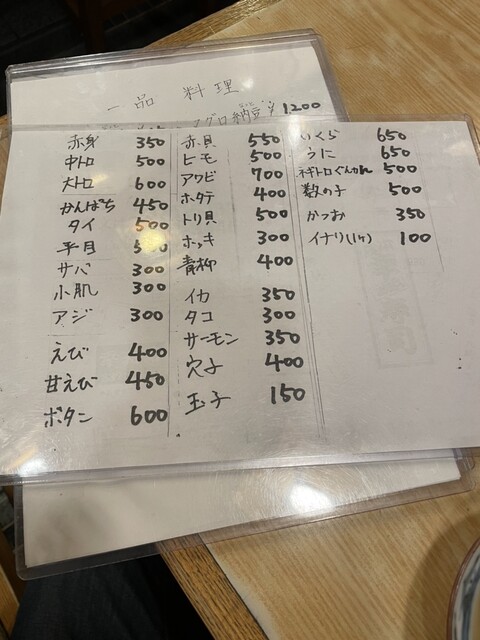 一品 料理
マグロ納豆 1200
赤身 350
中トロ 500
大トロ 600
かんぱち 450
タイ 500
平目
サバ 300
小肌 300
アジ 300
えび 400
甘えび 450
ボタン 600
赤貝 550
ヒモ 500
アワビ 700
ホタテ 400
トリ貝 500
ホッキ 300
青柳 400
イカ 350
タコ 300
サーモン 350
穴子 400
玉子 150
いくら 650
うに 650
ネギトロぐんかん 500
数の子 500
かつお 350
イナリ(1ヶ) 100